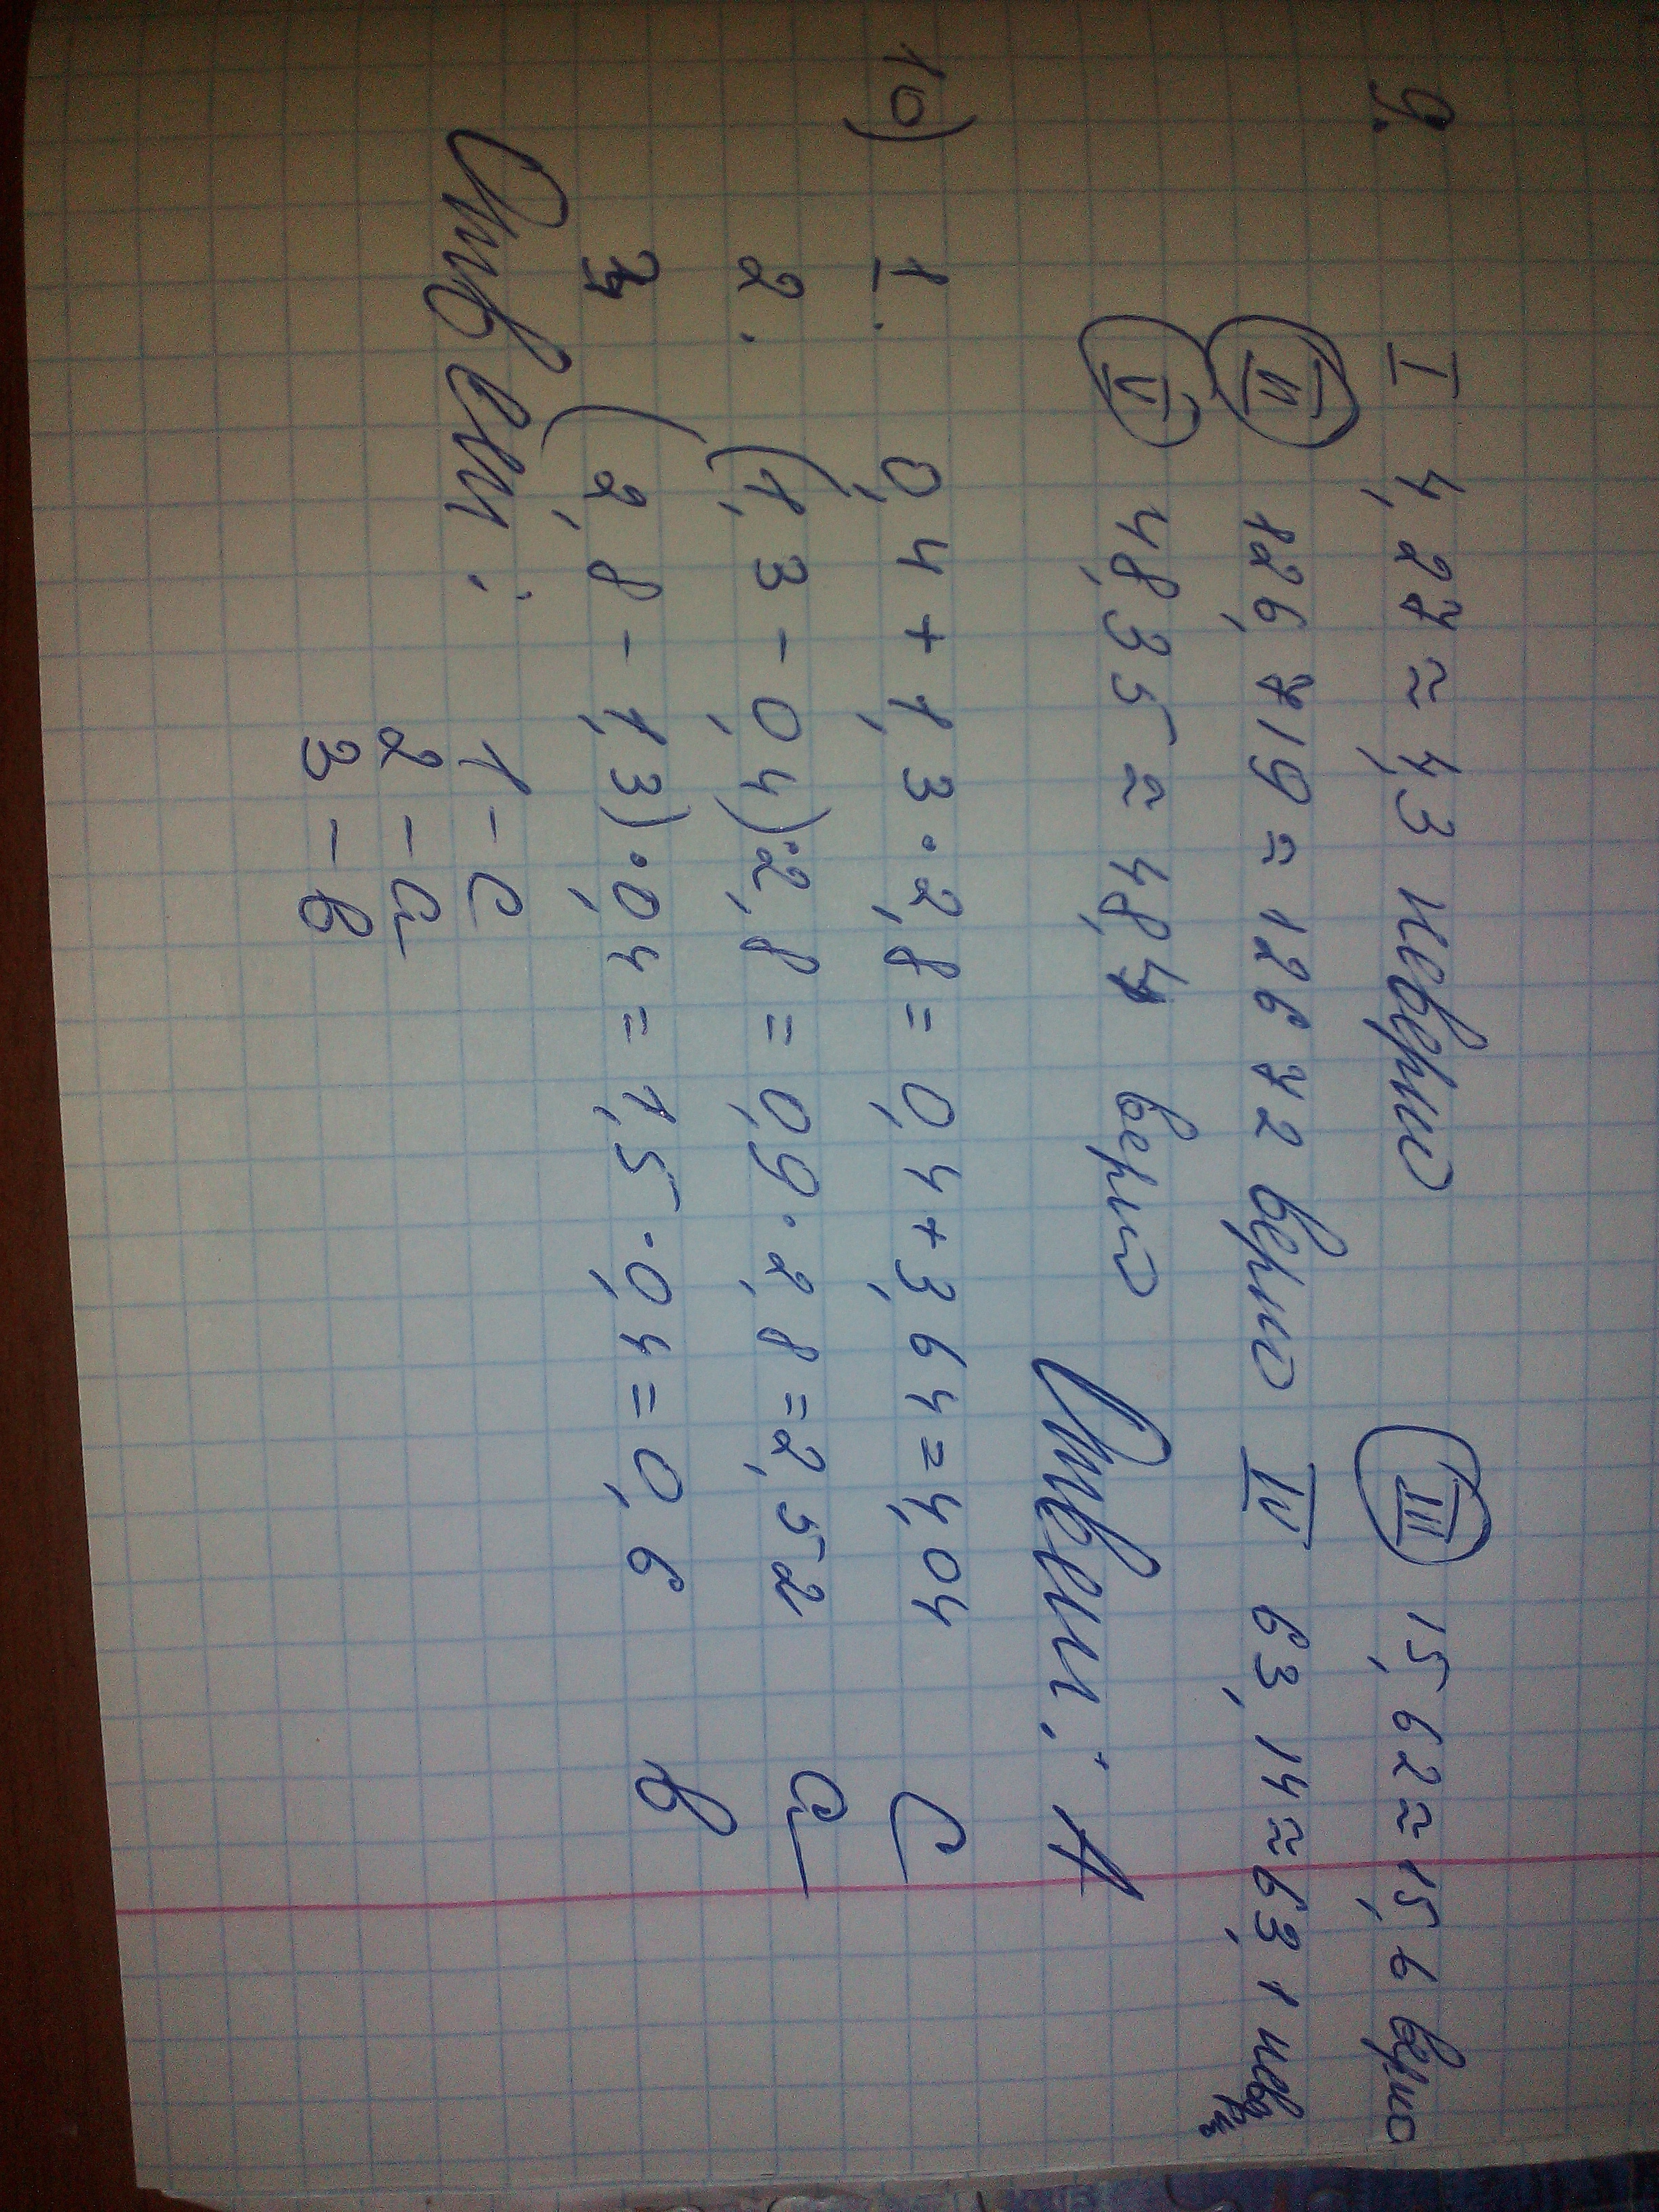 9. I 4,27 ≈ 4,3 неверно III 15,62 ≈ 15,6 верно
II 126,719 ≈ 126,72 верно IV 63,14 ≈ 63,1
V 48,35 ≈ 48,4 верно Ответ: А
10) 1. 0,4 + 1,3 · 2,8 = 0,4 + 3,64 = 4,04 С
2. (1,3 - 0,4) · 2,8 = 0,9 · 2,8 = 2,52 а
3. (2,8 - 1,3) · 0,4 = 1,5 · 0,4 = 0,6 в
Ответ: 1 - с
2 - а
3 - в